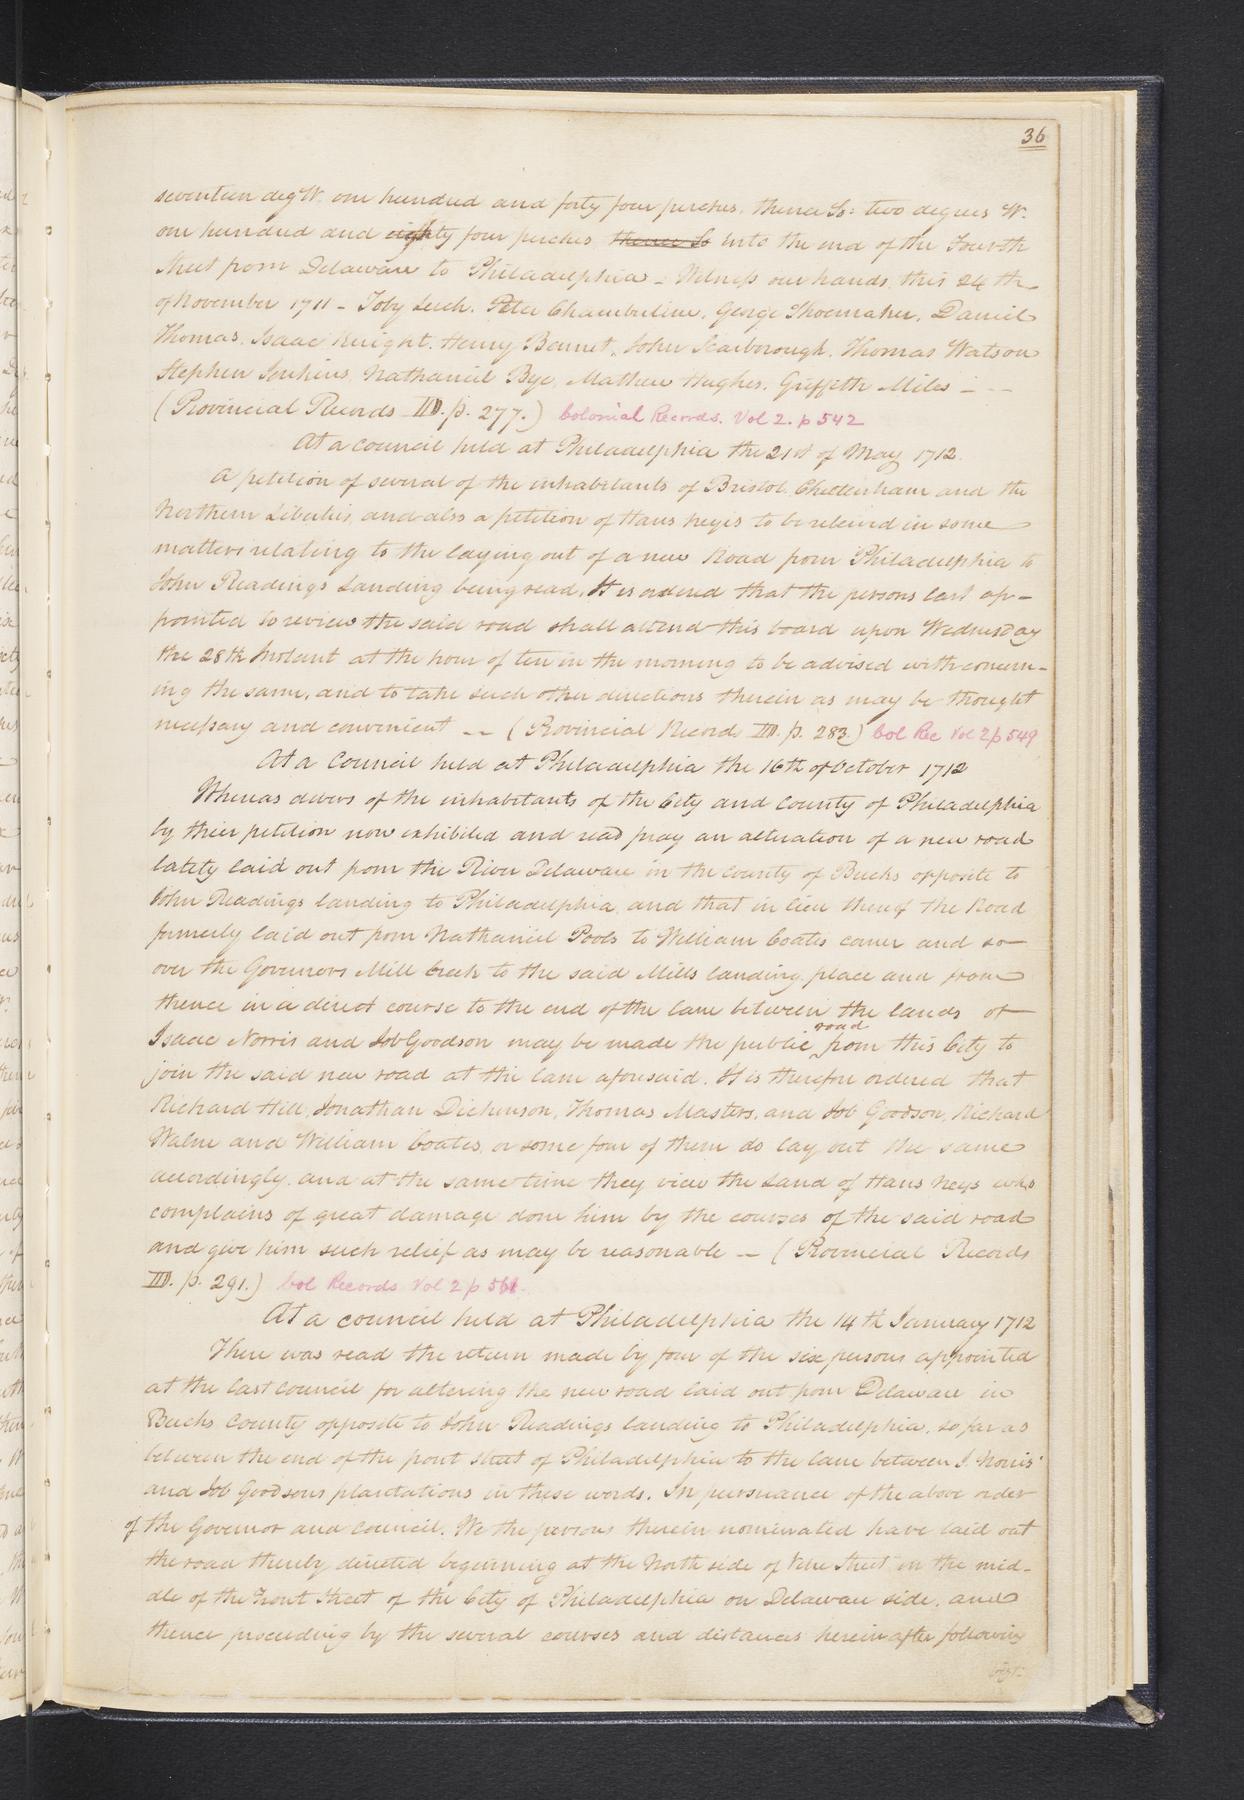 36
seventeen deg W. one hundred and forty four perches. thence So: two degrees W.
one hundred and eighty four perches thence So into the end of the Fourth
Street from Delaware to Philadelphia – Witness our hands, this 24th
of November 1711 – Toby Leech. Peter Chamberline. George Shoemaker. Daniel
Thomas. Isaac Knight. Henry Bennet. John Scarborough. Thomas Watson
Stephen Jenkins. Nathaniel Bye. Mathew Hughes. Griffeth Miles –
(Provincial Records III. p. 277.) Colonial Records. Vol 2. p 542
At a council held at Philadelphia the 21st of May 1712.
A petition of several of the inhabitants of Bristol. Cheltenham and the
Northern Liberties and also a petition of Hans Neyis to be releived in some
matters relating to the laying out of a new Road from Philadelphia to
John Readings Landing being read. It is ordered that the persons last ap–
pointed to review the said road shall attend this board upon Wednesday
the 28th Instant at the hour of ten in the morning to be advised with concern–
ing the same, and to take such other directions therein as may be thought
necessary and convenient –– (Provincial Record III. p. 283) Col Rec Vol 2 p 549
At a Council held at Philadelphia the 16th of October 1712
Whereas divers of the inhabitants of the City and County of Philadelphia
by their petition now exhibited and read pray an alteration of a new road
lately laid out from the River Delaware in the County of Bucks opposite to
John Readings landing to Philadelphia, and that in lieu thereof the Road
formerly laid out from Nathaniel Pools to William Coates corner and so
over the Governors Mill Creek to the said Mills landing place and from
thence in a direct course to the end of the lane between the lands of
Isaac Norris and Job Goodson may be made the public road from this City to
join the said new road at the lane aforesaid. It is therefore ordered that
Richard Hill, Jonathan Dickenson, Thomas Masters, and Job Goodson, Richard
Waln and William Coates, or some four of them do lay out the same
accordingly. and at the same time they view the Land of Hans Neys who
complains of great damage done him by the courses of the said road
and give him such relief as may be reasonable –– (Provincial Records
III. p. 291.) Col Records Vol 2 p 561.
At a council held at Philadelphia the 14th January 1712
There was read the return made by four of the six persons appointed
at the last council for altering the new road laid out from Delaware in
Bucks County opposite to John Readings landing to Philadelphia, so far as
between the end of the front street of Philadelphia to the lane between I. Norris'
and Job Goodsons plantations in these words. In pursuance of the above order
of the Governor and council. We the persons therein nominated have laid out
the road thereby directed beginning at the North side of Vine Street in the mid–
dle of the Front Street of the City of Philadelphia on Delaware side, and
thence proceeding by the several courses and distances herein after following